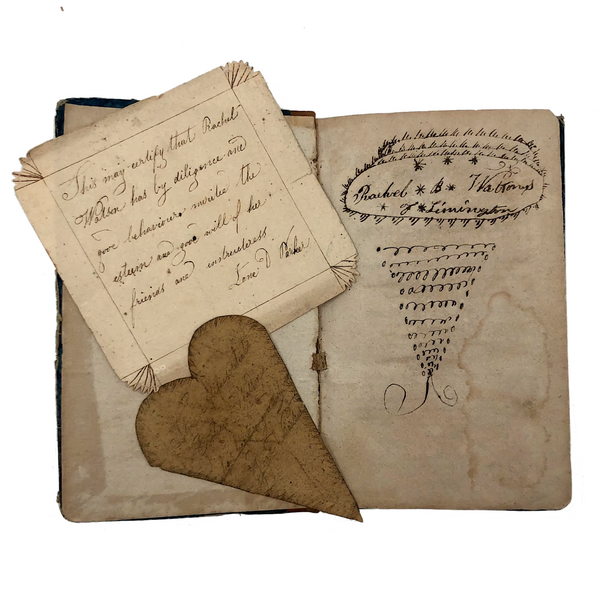 This may certify that Rachel
Watson has by diligence and
good behaviour merited the
esteem and good will of her
friends and instructress
D Parker
Rachel * B * Watson's
of Limington